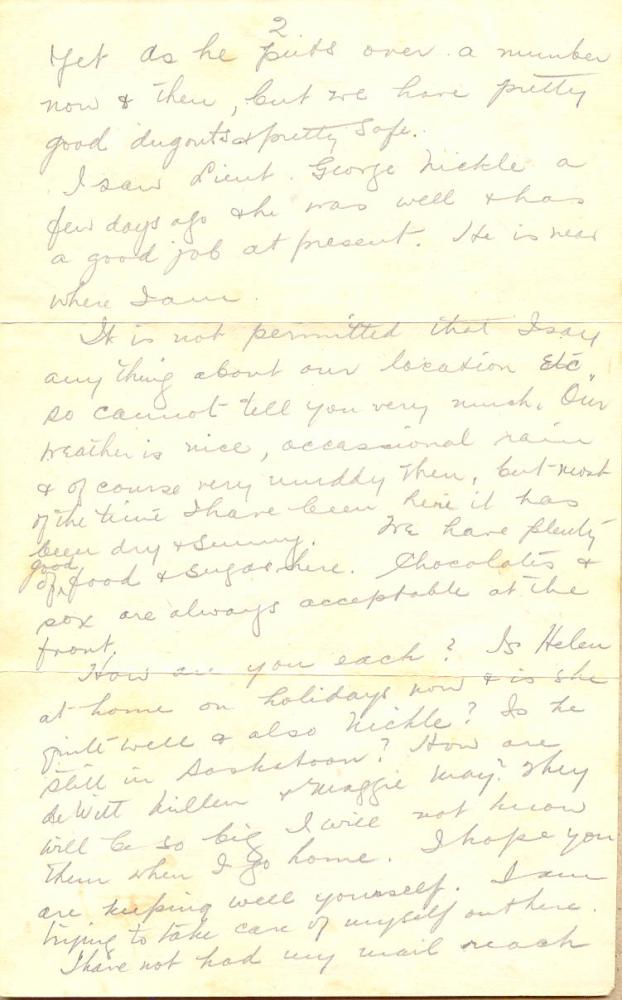 2
Yet as he puts over a number
now & then, but we have pretty
good dugouts & pretty safe.
I saw Lieut. George Nickle a
few days ago & he was well & has
a good job at present. He is near
where I am.
It is not permitted that I say
any thing about our location etc
so cannot tell you very much. Our
weather is nice, occassional rain
& of course very muddy then, but most
of the time I have been here it has
been dry & sunny. We have plenty
of good food & sugar here. Chocolates &
sox are always acceptable at the
front.
How are you each? Is Helen
at home on holidays now & is she
quite well & also Nickle? Is he
still in Saskatoon? How are
de Witt Millen & Maggie May? They
will be so big I will not know
them when I go home. I hope you
are keeping well yourself. I am
trying to take care of myself out here.
I have not had my mail reach